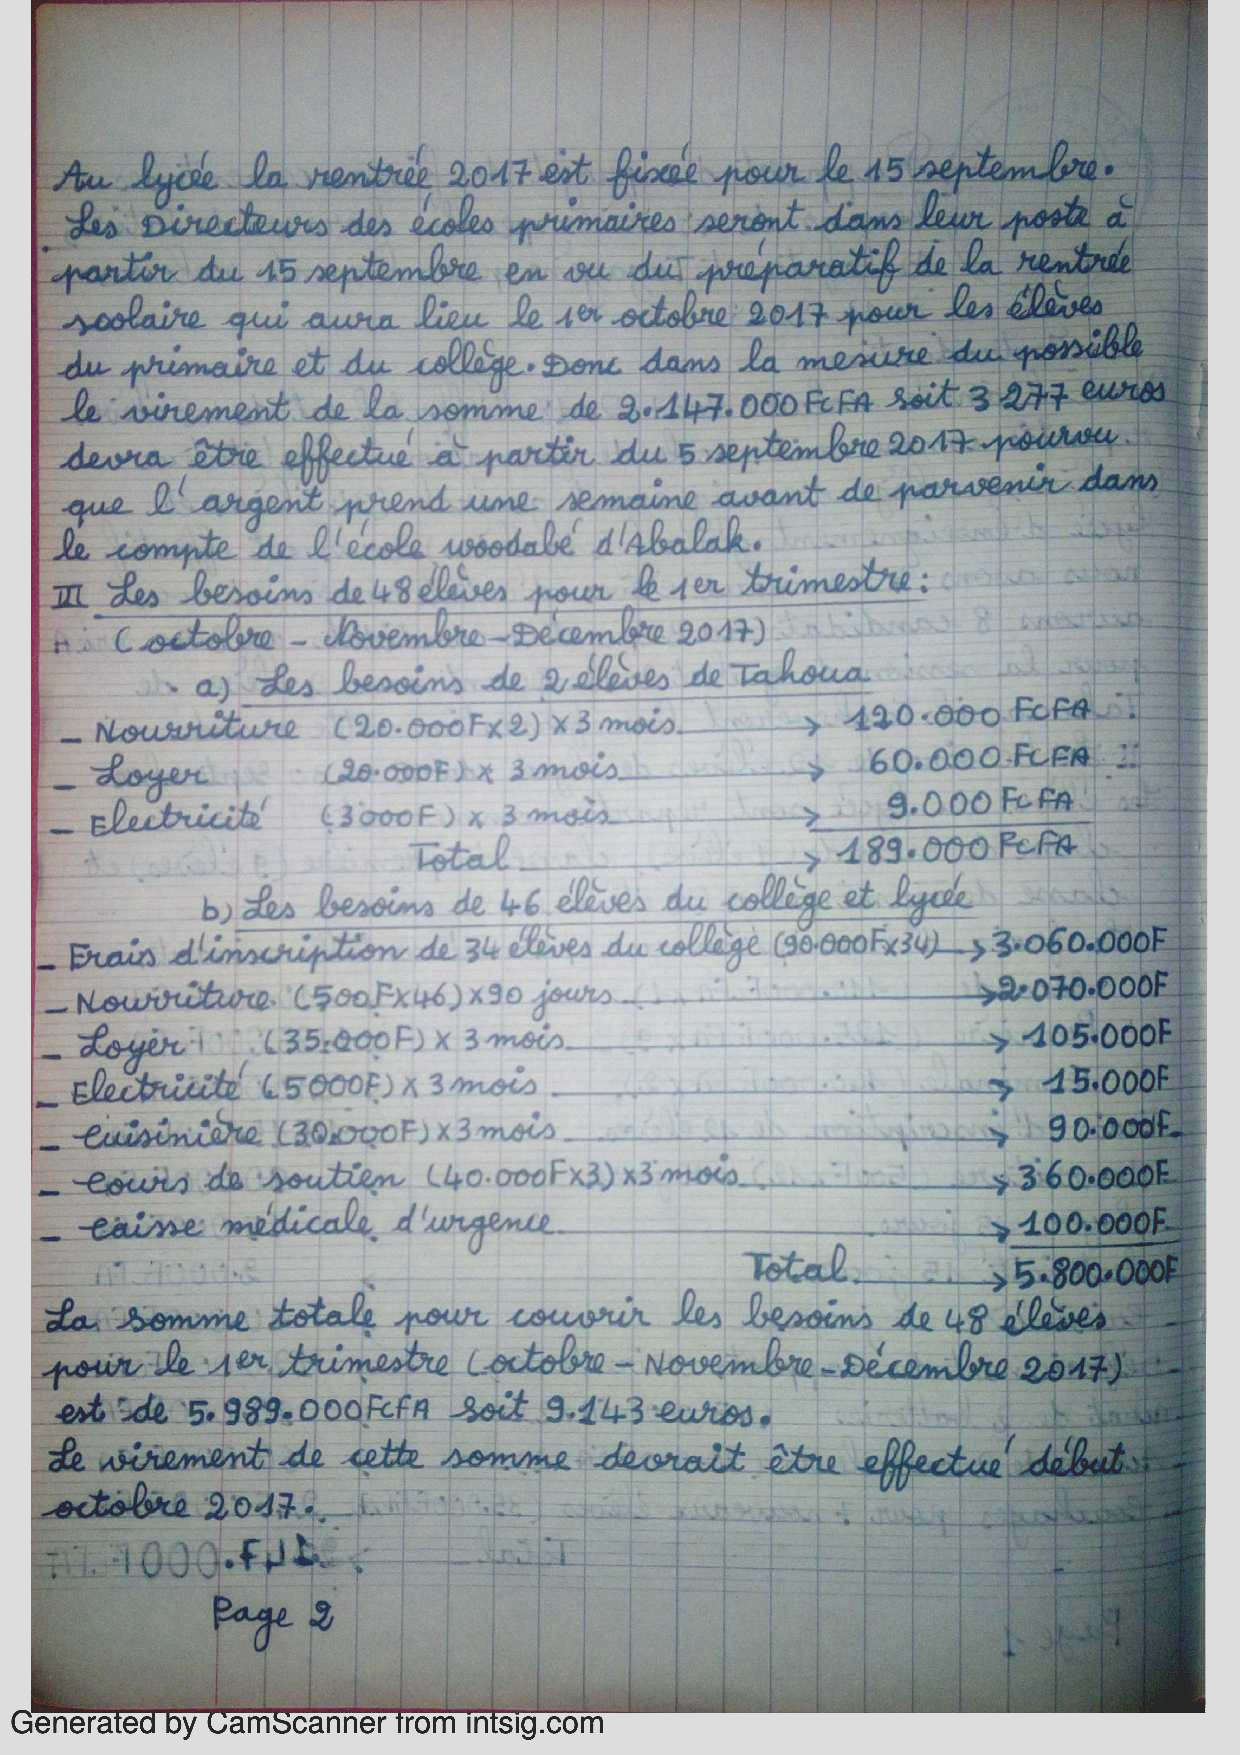 Au lycée la rentrée 2017 est fixée pour le 15 septembre.
Les Directeurs des écoles primaires seront dans leur poste à
partir du 15 septembre en vu du préparatif de la rentrée
scolaire qui aura lieu le 1er octobre 2017 pour les élèves
du primaire et du collège. Donc dans la mesure du possible
le virement de la somme de 2.147.000 FcFA soit 3 277 euros
devra être effectué à partir du 5 septembre 2017 pourvu
que l'argent prend une semaine avant de parvenir dans
le compte de l'école woodabé d'Abalak.
III Les besoins de 48 élèves pour le 1er trimestre:
(octobre - Novembre - Décembre 2017)
a) Les besoins de 2 élèves de Tahoua
- Nourriture (20.000F x 2) x 3 mois → 120.000 FcFA
- Loyer (20.000F) x 3 mois → 60.000 FcFA
- Electricité (3000F) x 3 mois → 9.000 FcFA
Total → 189.000 FcFA
b) Les besoins de 46 élèves du collège et lycée
- Frais d'inscription de 34 élèves du collège (90.000F x 34) → 3.060.000F
- Nourriture (500F x 46) x 90 jours → 2.070.000F
- Loyer (35.000F) x 3 mois → 105.000F
- Electricité (5000F) x 3 mois → 15.000F
- Cuisinière (30.000F) x 3 mois → 90.000F
- Cours de soutien (40.000F x 3) x 3 mois → 360.000F
- Caisse médicale d'urgence → 100.000F
Total → 5.800.000F
La somme totale pour couvrir les besoins de 48 élèves
pour le 1er trimestre (octobre - Novembre - Décembre 2017)
est de 5.989.000 FcFA soit 9.143 euros.
Le virement de cette somme devrait être effectué début
octobre 2017.
Page 2
Generated by CamScanner from intsig.com